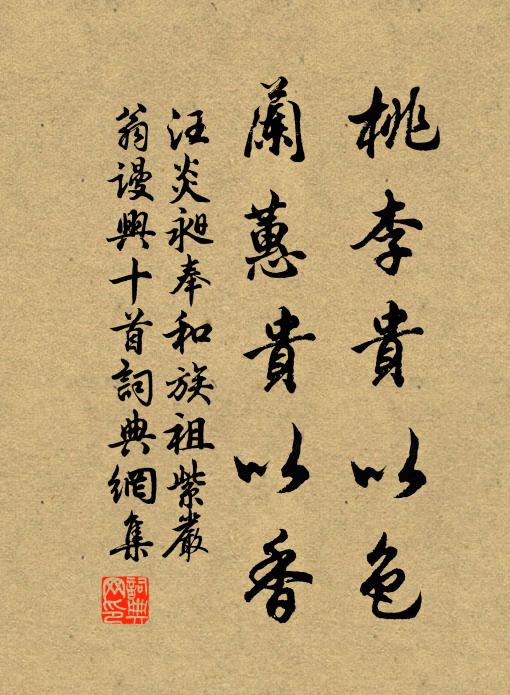 桃李貴以色
蘭蕙貴以香
汪炎昶奉和族祖紫巖
翁謾興十首詞典網集
詞典网印